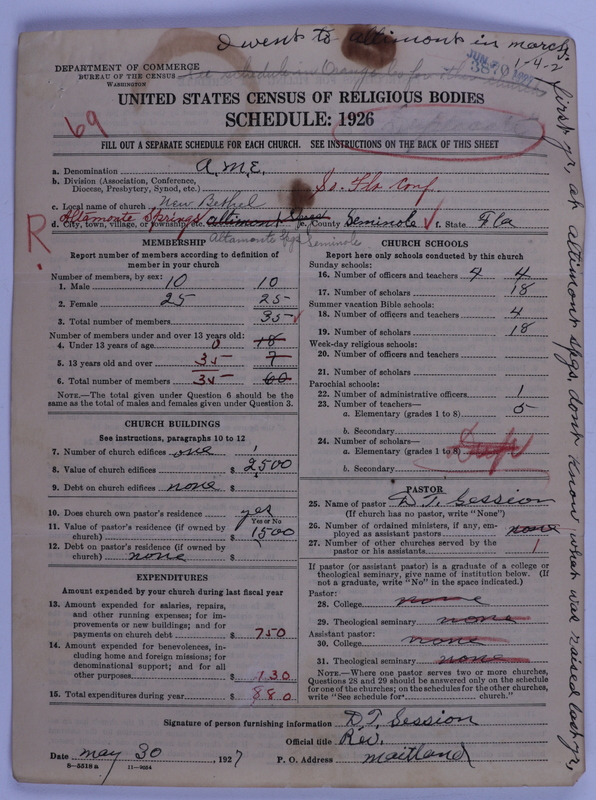 I went to altimont in march
1-4-2
DEPARTMENT OF COMMERCE
BUREAU OF THE CENSUS
WASHINGTON
UNITED STATES CENSUS OF RELIGIOUS BODIES
SCHEDULE: 1926
69
FILL OUT A SEPARATE SCHEDULE FOR EACH CHURCH. SEE INSTRUCTIONS ON THE BACK OF THIS SHEET
a. Denomination A.M.E.
b. Division (Association, Conference, Diocese, Presbytery, Synod, etc.) So. Fla Conf.
c. Local name of church New Bethel
Altamonte Springs
d. City, town, village, or township etc. altimont Spgs e. County Seminole f. State Fla
Altamonte Spgs Seminole
R.
MEMBERSHIP
Report number of members according to definition of
member in your church
Number of members, by sex:
1. Male 10 10
2. Female 25 25
3. Total number of members 35
Number of members under and over 13 years old:
4. Under 13 years of age 0 18
5. 13 years old and over 35 7
6. Total number of members 35 60
NOTE.—The total given under Question 6 should be the
same as the total of males and females given under Question 3.
CHURCH BUILDINGS
See instructions, paragraphs 10 to 12
7. Number of church edifices one 1
8. Value of church edifices $ 2500
9. Debt on church edifices none $
10. Does church own pastor's residence yes
Yes or No
11. Value of pastor's residence (if owned by
church) $ 1500
12. Debt on pastor's residence (if owned by
church) none $
EXPENDITURES
Amount expended by your church during last fiscal year
13. Amount expended for salaries, repairs,
and other running expenses; for im-
provements or new buildings; and for
payments on church debt $ 750
14. Amount expended for benevolences, in-
cluding home and foreign missions; for
denominational support; and for all
other purposes $ 130
15. Total expenditures during year $ 880
CHURCH SCHOOLS
Report here only schools conducted by this church
Sunday schools:
16. Number of officers and teachers 4 4
17. Number of scholars 18
Summer vacation Bible schools:
18. Number of officers and teachers 4
19. Number of scholars 18
Week-day religious schools:
20. Number of officers and teachers
21. Number of scholars
Parochial schools:
22. Number of administrative officers 1
23. Number of teachers—
a. Elementary (grades 1 to 8) 5
b. Secondary
24. Number of scholars—
a. Elementary (grades 1 to 8)
b. Secondary
PASTOR
25. Name of pastor D. T. Session
(If church has no pastor, write "None")
26. Number of ordained ministers, if any, em-
ployed as assistant pastors none
27. Number of other churches served by the
pastor or his assistants 1
If pastor (or assistant pastor) is a graduate of a college or
theological seminary, give name of institution below. (If
not a graduate, write "No" in the space indicated.)
Pastor:
28. College none
29. Theological seminary none
Assistant pastor:
30. College none
31. Theological seminary none
NOTE.—Where one pastor serves two or more churches,
Questions 28 and 29 should be answered only on the schedule
for one of the churches; on the schedules for the other churches,
write "See schedule for church."
Signature of person furnishing information D. T. Session
Official title Rev.
Date may 30, 1927 P. O. Address maitland
8—5518 a 11—9054
first yr, at altimont spgs, dont know what was raised last yr,